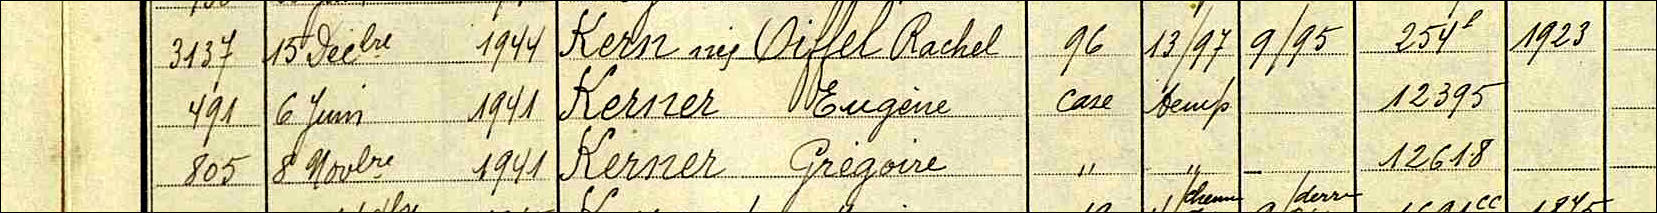 3137 15 Décbre 1944 Kern née Oiffel Rachel 96 13/97 9/95 254f 1923
491 6 Juin 1941 Kerner Eugène case temp 12395
805 8 Novbre 1941 Kerner Grégoire " " 12618